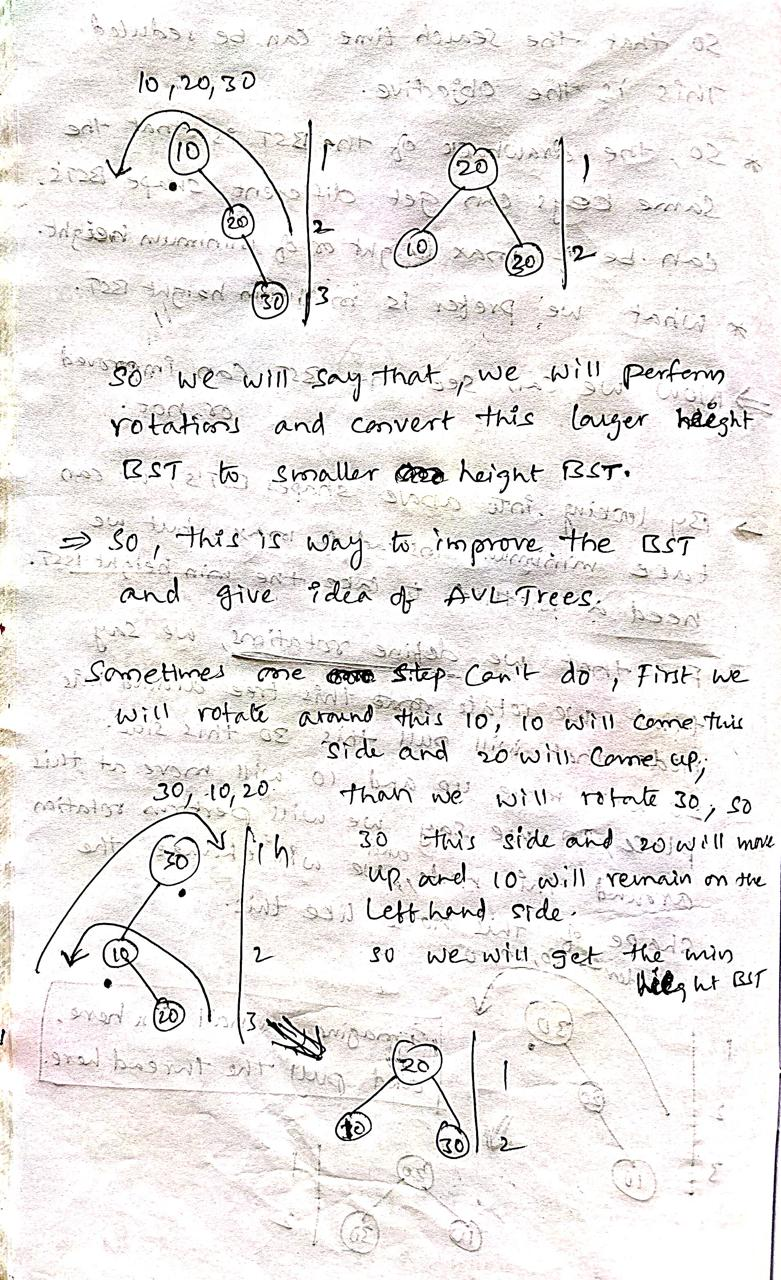 10, 20, 30
10
20
30
1
2
3
20
10
20
1
2
So we will say that, we will perform
rotations and convert this larger height
BST to smaller height BST.
⇒ So, this is way to improve the BST
and give idea of AVL Trees.
Sometimes one step can't do, First we
will rotate around this 10, 10 will come this
side and 20 will come up,
than we will rotate 30, so
30 this side and 20 will move
up and 10 will remain on the
left hand side.
so we will get the min
height BST
30, 10, 20
30
10
20
1h
2
3
20
10
30
1
2